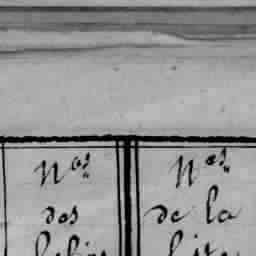 Nos
des
Nos
de la